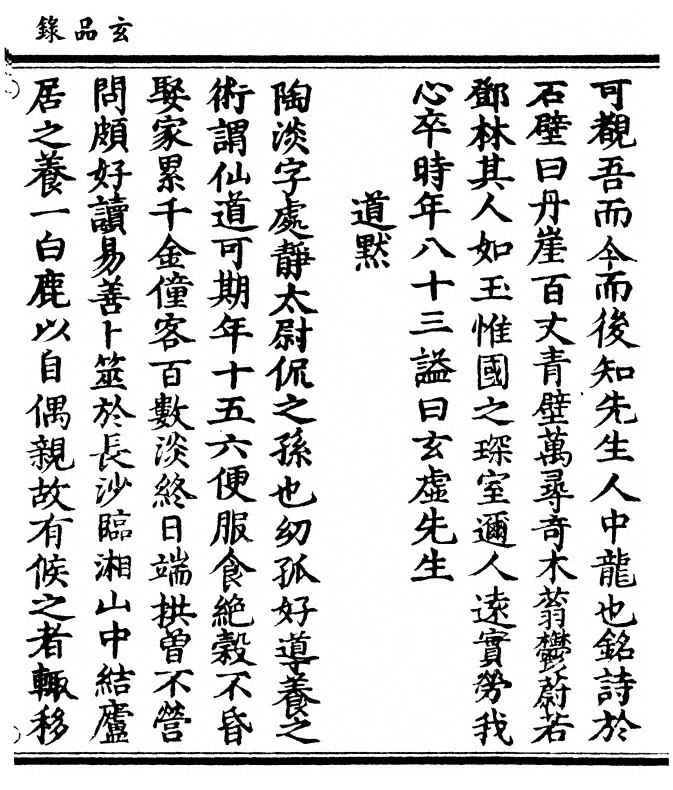 玄品錄
可觀吾而今而後知先生人中龍也銘詩於
石壁曰丹崖百丈青壁萬尋奇木蓊鬱蔚若
鄧林其人如玉惟國之琛室邇人遠實勞我
心卒時年八十三謚曰玄虛先生
道默
陶淡字處靜太尉侃之孫也幼孤好導養之
術謂仙道可期年十五六便服食絶穀不昏
娶家累千金僮客百數淡終日端拱曾不營
問頗好讀易善卜筮於長沙臨湘山中結廬
居之養一白鹿以自偶親故有候之者輒移